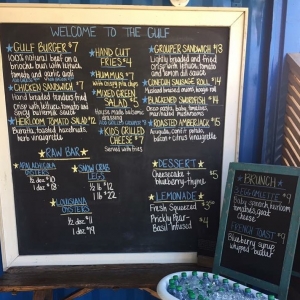 WELCOME TO THE GULF
GULF BURGER $7
100% natural beef on a
brioche with lettuce, tomato,
and garlic aioli
CHICKEN SANDWICH $7
Hand breaded tenders fried
crisp with lettuce, tomato and
spicy buttermilk sauce
HEIRLOOM TOMATO SALAD $12
Burrata, toasted hazelnuts,
herb vinaigrette
HAND CUT
FRIES $4
HUMMUS $7
with crispy pita chips
MIXED GREEN
SALAD $5
House made balsamic
dressing
KID'S GRILLED
CHEESE $7
Served with fries
GROUPER SANDWICH $13
Lightly breaded and fried
crisp with lettuce, tomato
and lemon dill sauce
CONECUH SAUSAGE ROLL $14
BLACKENED SWORDFISH $14
tomatoes,
marinated mushrooms
ROASTED AMBERJACK $15
Arugula, confit potato,
bacon + citrus vinaigrette
RAW BAR
APALACHICOLA
OYSTERS
1/2 doz $10
1 doz $19
SNOW CRAB
LEGS
1/2 lb $12
1 lb $22
LOUISIANA
OYSTERS
1/2 doz $11
1 doz $19
DESSERT
Cheesecake + $5
blueberry-thyme
LEMONADE
Fresh Squeezed $3.50
Prickly Pear- $4
Basil Infused
BRUNCH
$9
Baby spinach, heirloom
tomatoes, goat
cheese
FRENCH TOAST $9
Blueberry syrup
whipped butter